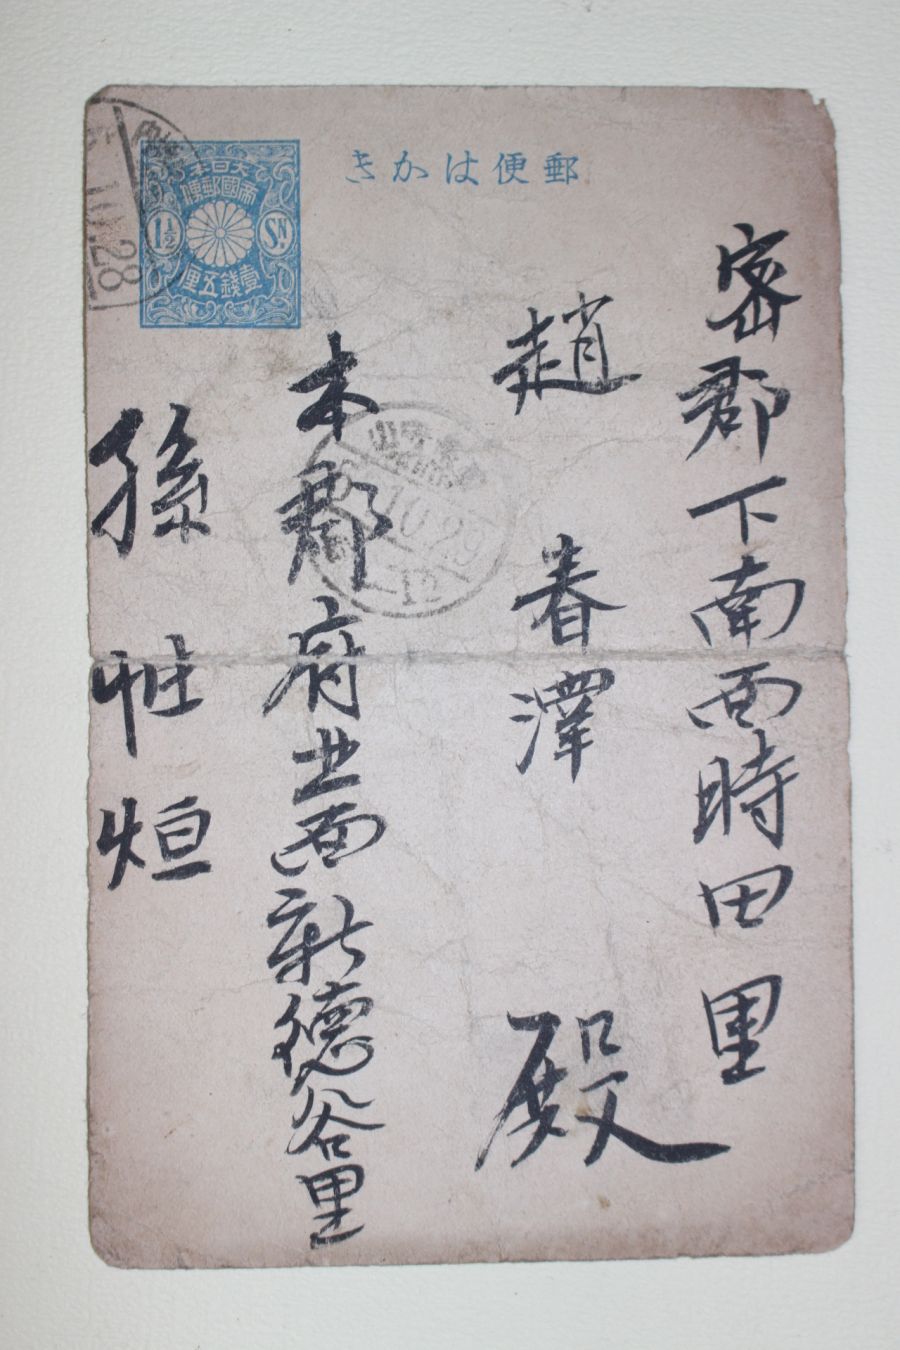 郵便はかき
大日本
帝國郵便
1½ SN.
壹錢五厘
10.28
密郡下南面時田里
趙春澤殿
10.29
本郡府北面新德谷里
孫
烜